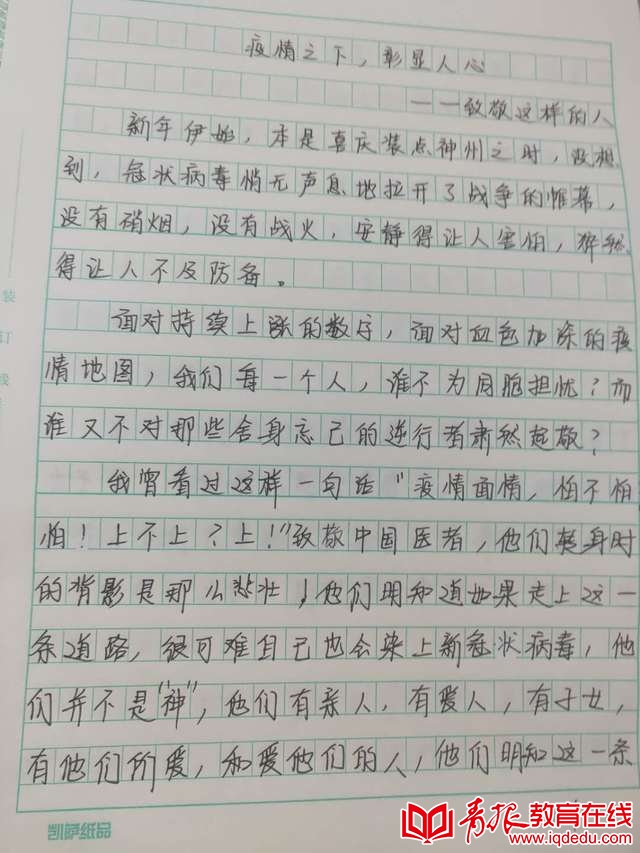 疫情之下，彰显人心
——致敬这样的人
新年伊始，本是喜庆装点神州之时，没想
到，冠状病毒悄无声息地拉开了战争的帷幕，
没有硝烟，没有战火，安静得让人害怕，猝然
得让人不及防备。
面对持续上涨的数字，面对血色加深的疫
情地图，我们每一个人，谁不为同胞担忧？而
谁又不对那些舍身忘己的逆行者肃然起敬？
我曾看过这样一句话“疫情面情，怕不怕
怕！上不上？上！”致敬中国医者，他们挺身时
的背影是那么悲壮，他们明知道如果走上这一
条道路，很可难自己也会染上新冠状病毒，他
们并不是“神”，他们有亲人，有爱人，有子女，
有他们所爱，和爱他们的人，他们明知这一条
装
订
线
凯萨纸品
青报教育在线
www.iqdedu.com